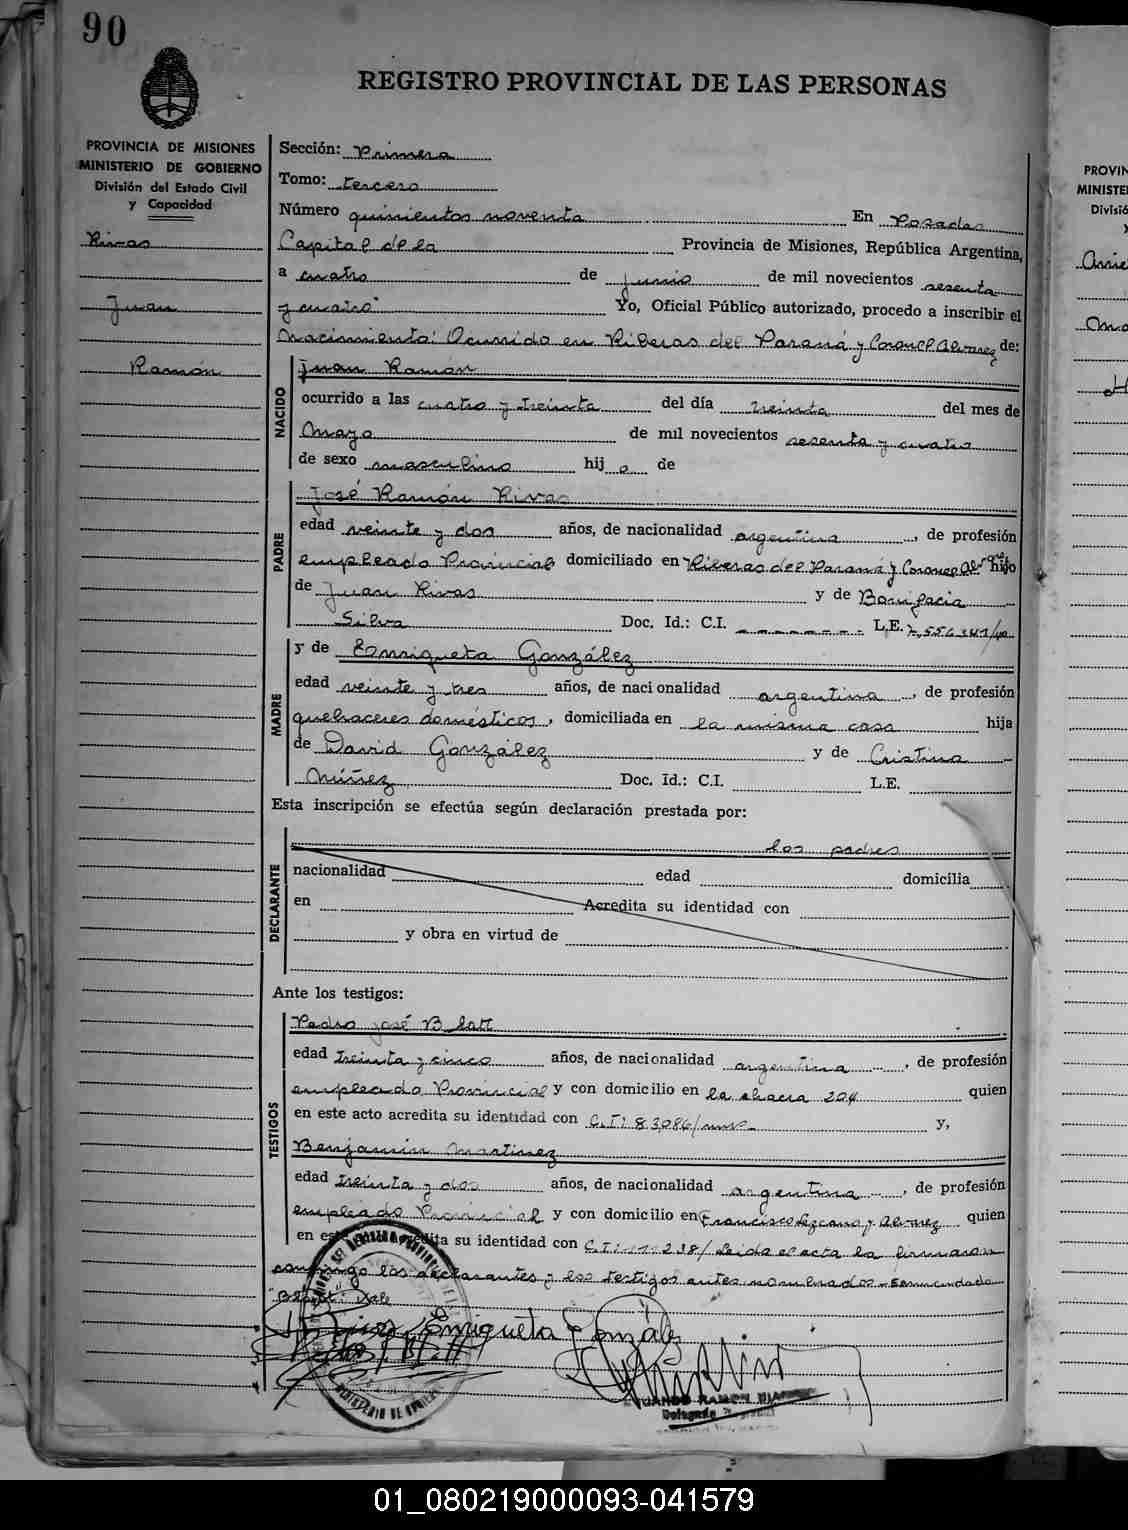 90
REGISTRO PROVINCIAL DE LAS PERSONAS
PROVINCIA DE MISIONES
MINISTERIO DE GOBIERNO
División del Estado Civil
y Capacidad
Rivas
Juan
Ramón
Sección: Primera
Tomo: tercero
Número quinientos noventa En Posadas
Capital de la Provincia de Misiones, República Argentina,
a cuatro de Junio de mil novecientos sesenta
y cuatro Yo, Oficial Público autorizado, procedo a inscribir el
nacimiento: Ocurrido en Riberas del Paraná y Coronel Alvarez de:
NACIDO
Juan Ramón
ocurrido a las cuatro y treinta del día treinta del mes de
Mayo de mil novecientos sesenta y cuatro
de sexo masculino hijo de
PADRE
José Ramón Rivas
edad veinte y dos años, de nacionalidad argentina, de profesión
empleado Provincial domiciliado en Riberas del Paraná y Coronel hijo
de Juan Rivas y de Bonifacia
Silva Doc. Id.: C.I. L.E. 7,556,341/
MADRE
y de Enriqueta González
edad veinte y tres años, de nacionalidad argentina, de profesión
quehaceres domésticos, domiciliada en la misma casa hija
de David González y de Cristina
Núñez Doc. Id.: C.I. L.E.
Esta inscripción se efectúa según declaración prestada por:
DECLARANTE
los padres
nacionalidad edad domicilia
en Acredita su identidad con
y obra en virtud de
Ante los testigos:
TESTIGOS
Pedro José Blatt
edad treinta y cinco años, de nacionalidad argentina, de profesión
empleado Provincial y con domicilio en la chacra 204 quien
en este acto acredita su identidad con C.I: 83,086/ y,
Benjamín Martinez
edad treinta y dos años, de nacionalidad argentina, de profesión
empleado Provincial y con domicilio en Francisco Lezcano y Alvarez quien
en su identidad con C.I: 238/ Leida el acta la firmaron
conmigo los declarantes y los testigos antes nombrados = Enmendado
Vale
Enriqueta González
RAMON
Delegado
PROVIN
MINISTE
Divisió
01_080219000093-041579